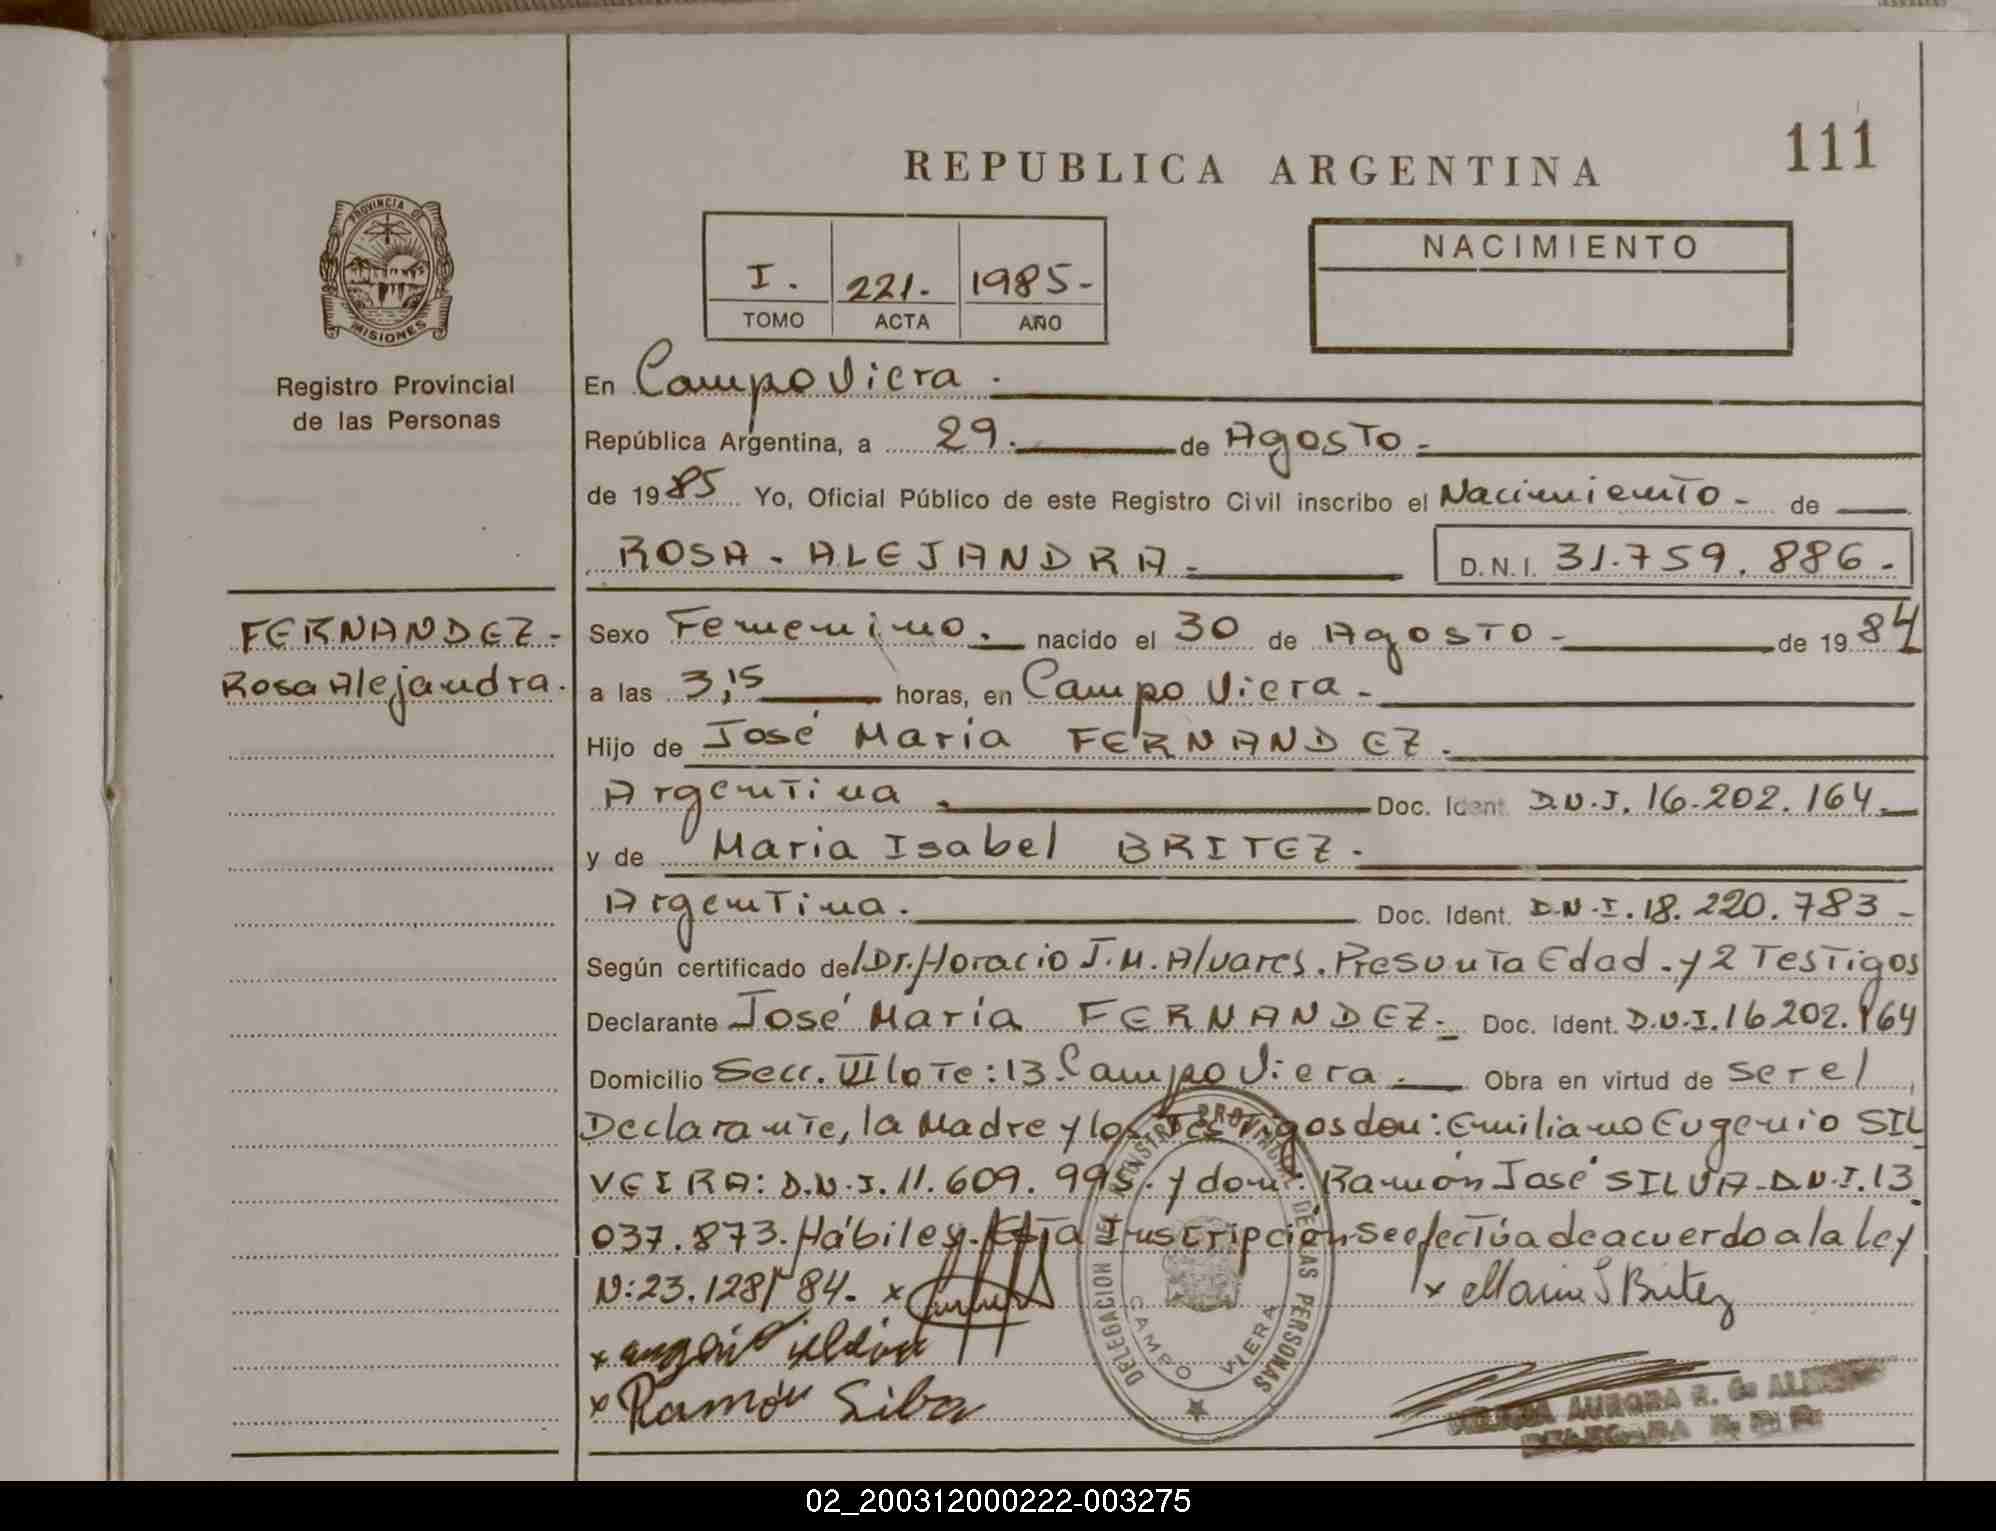 REPUBLICA ARGENTINA
111
PROVINCIA DE
MISIONES
Registro Provincial
de las Personas
I. 221. 1985-
TOMO ACTA AÑO
NACIMIENTO
En Campo Viera.
República Argentina, a 29. de Agosto-
de 1985 Yo, Oficial Público de este Registro Civil inscribo el Nacimiento- de
ROSA-ALEJANDRA- D.N.I. 31.759.886-
FERNANDEZ-
Rosa Alejandra.
Sexo Femenino. nacido el 30 de Agosto- de 1984
a las 3,15 horas, en Campo Viera-
Hijo de José María FERNANDEZ.
Argentina. Doc. Ident. D.N.I. 16.202.164-
y de Maria Isabel BRITEZ.
Argentina. Doc. Ident. D.N.I. 18.220.783-
Según certificado del Dr. Horacio J.M. Alvares. Presunta Edad. y 2 Testigos
Declarante José María FERNANDEZ- Doc. Ident. D.N.I. 16202.164
Domicilio Secc. VI lote: 13-Campo Viera. Obra en virtud de ser el
Declarante, la Madre y los Testigos don: Emiliano Eugenio SIL
VEIRA: D.N.I. 11.609.995. y don: Ramón José SILVA-D.N.I. 13.
037.873. Hábiles. Esta Inscripción se efectúa de acuerdo a la ley
N: 23.128/84. x x Maria I Britez
x
x Ramón Silva
DELEGACION DEL REGISTRO PROVINCIAL DE LAS PERSONAS
CAMPO VIERA
AURORA R. G.
02_200312000222-003275